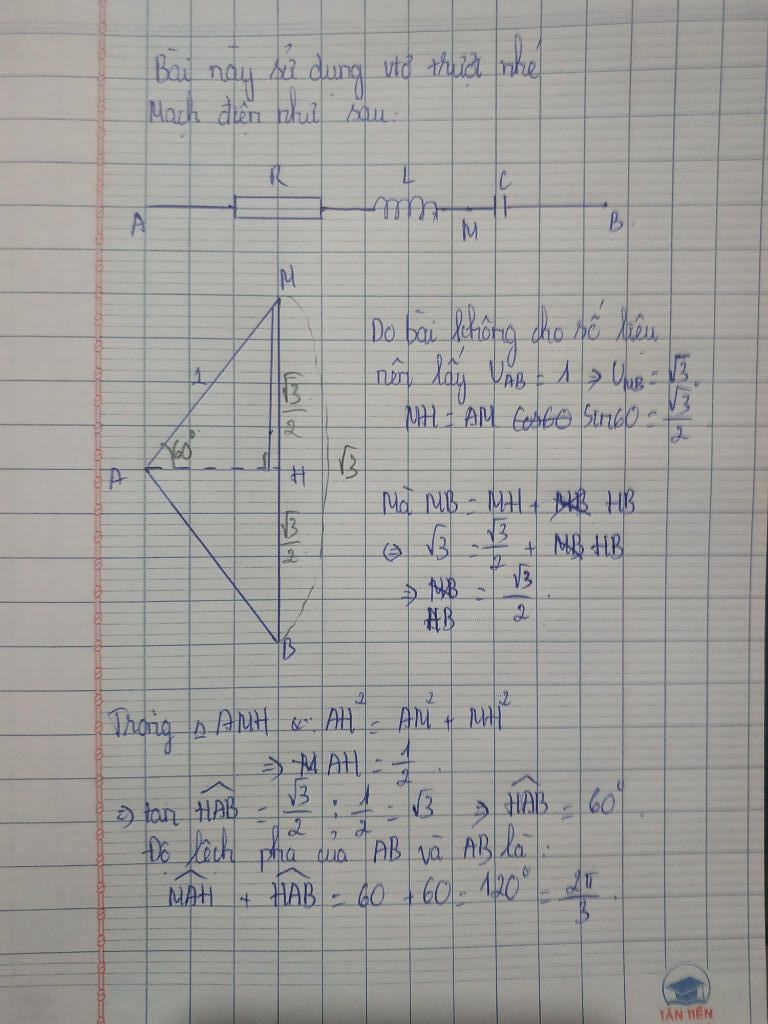 Bài này sử dụng vtơ trượt nhé
Mạch điện như sau:
R
L
C
A
M
B
M
1
60°
A
H
√3/2
√3
√3/2
B
Do bài không cho số liệu
nên lấy U_AB = 1 ⇒ U_MB = √3.
MH = AM sin60 = √3/2
Mà MB = MH + HB
⇔ √3 = √3/2 + HB
⇒ HB = √3/2.
Trong △ AMH có AH² = AM² + MH²
⇒ AH = 1/2.
⇒ tan HAB = √3/2 : 1/2 = √3 ⇒ HAB = 60°.
Độ lệch pha của AB và AB là:
MAH + HAB = 60 + 60 = 120° = 2π/3.
TÂN TIẾN